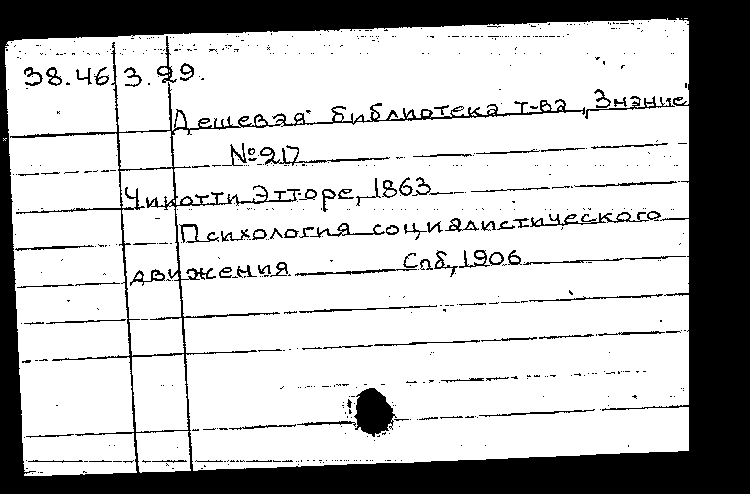 38.46.3.29.
Дешевая библиотека т-ва „Знание"
№217
Чикотти Этторе, 1863
Психология социалистического
движения Спб, 1906